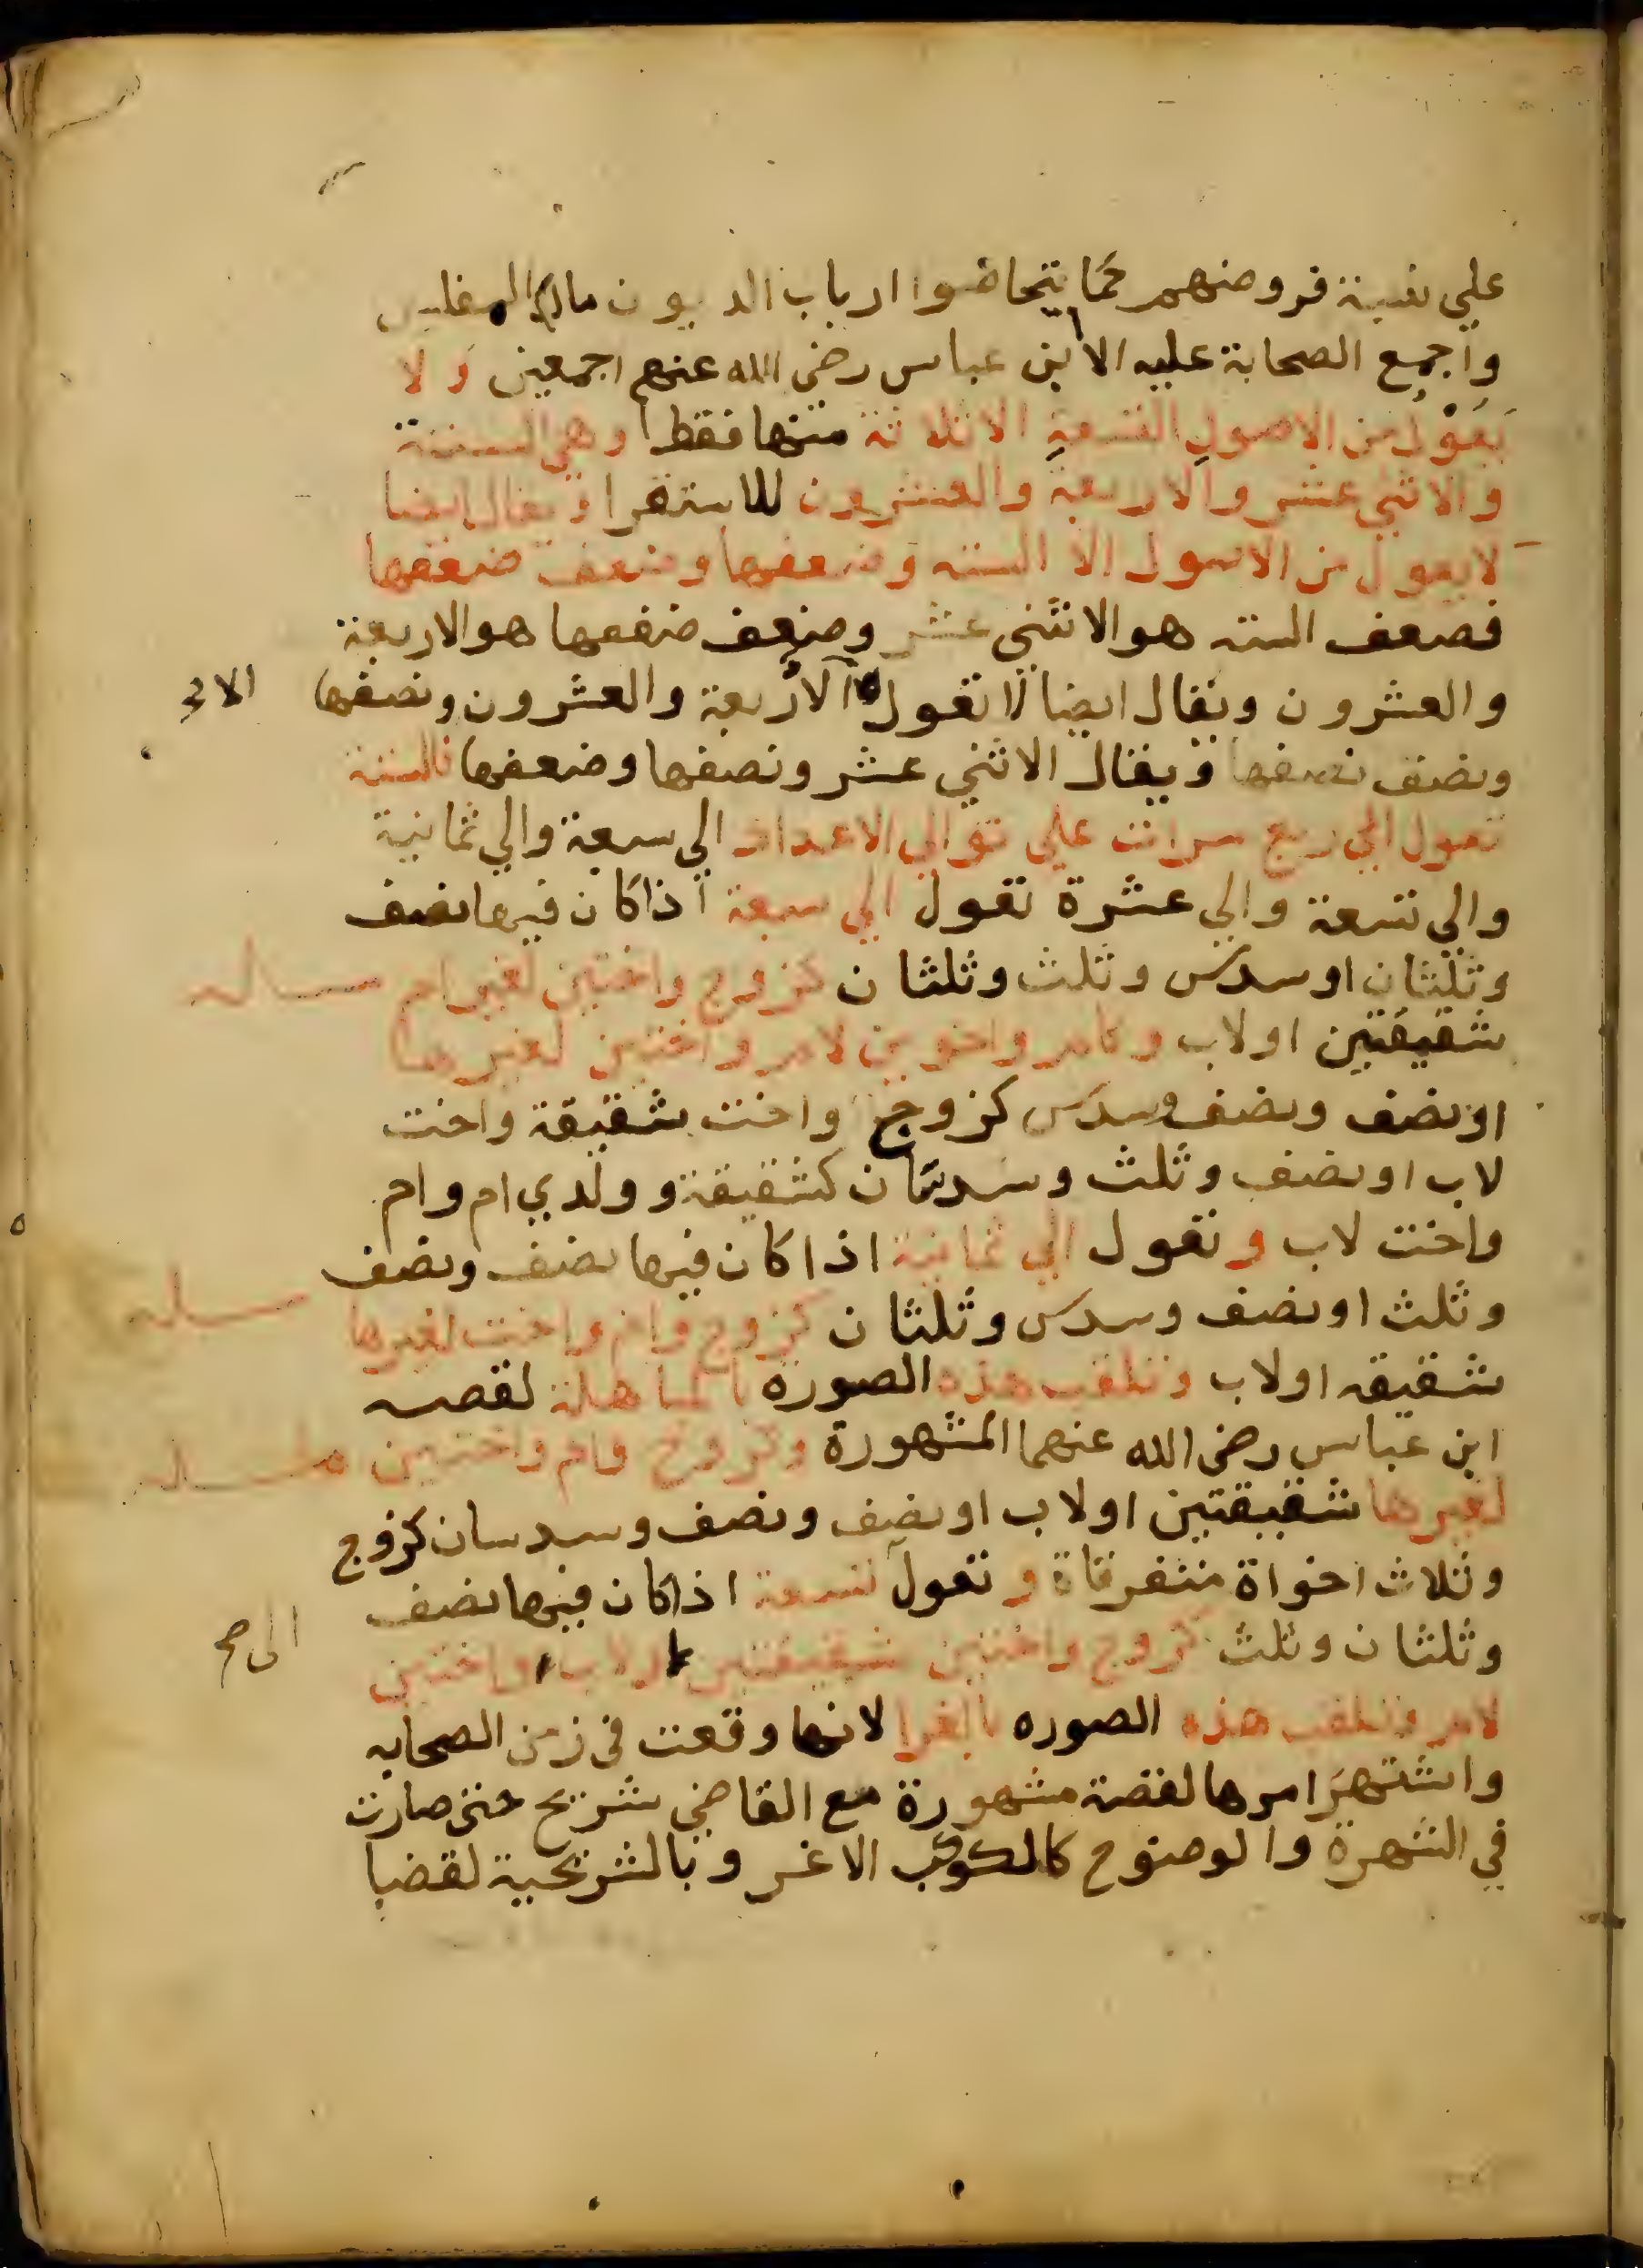 علي نسبة فروضهم كما يتحاصوا ارباب الديون مال المفلس
واجمع الصحابة عليه الا ابن عباس رضي الله عنهم اجمعين ولا
يعول من الاصول التسعة الا ثلاثة منها فقط وهي الستة
والاثني عشر والاربعة والعشرون للاستقرا ويقال ايضا
لا يعول من الاصول الا الستة وضعفها وضعف ضعفها
فضعف الستة هو الاثني عشر وضعف ضعفها هو الاربعة
والعشرون ويقال ايضا لا تعول الا الاربعة والعشرون ونصفها
ونصف نصفها ويقال الاثني عشر ونصفها وضعفها فالستة
تعول الي اربع مرات علي توالي الاعداد الي سبعة والي ثمانية
والي تسعة والي عشرة تعول الي سبعة اذا كان فيها نصف
وثلثان او سدس وثلث وثلثان كزوج واختين لغير ام
شقيقتين او لاب وكام واخوين لام واختين لغيرها
او نصف ونصف وسدس كزوج واخت شقيقة واخت
لاب او نصف وثلث وسدسان كشقيقة وولدي ام وام
واخت لاب وتعول الي ثمانية اذا كان فيها نصف ونصف
وثلث او نصف وسدس وثلثان كزوج وام واخت لغيرها
شقيقه او لاب وتلقب هذه الصورة بالمباهلة لقصه
ابن عباس رضي الله عنهما المشهورة وكزوج وام واختين
لغيرها شقيقتين او لاب او نصف ونصف وسدسان كزوج
وثلاث اخواة متفرقاة وتعول تسعة اذا كان فيها نصف
الي صح
وثلثان وثلث كزوج واختين شقيقتين او لاب واختين
لام وتلقب هذه الصوره بالغرا لانها وقعت في زمن الصحابه
واشتهر امرها لقصة مشهورة مع القاضي شريح حتى صارت
في الشهرة والوضوح كالكوكب الاغر وبالشريحية لقضا